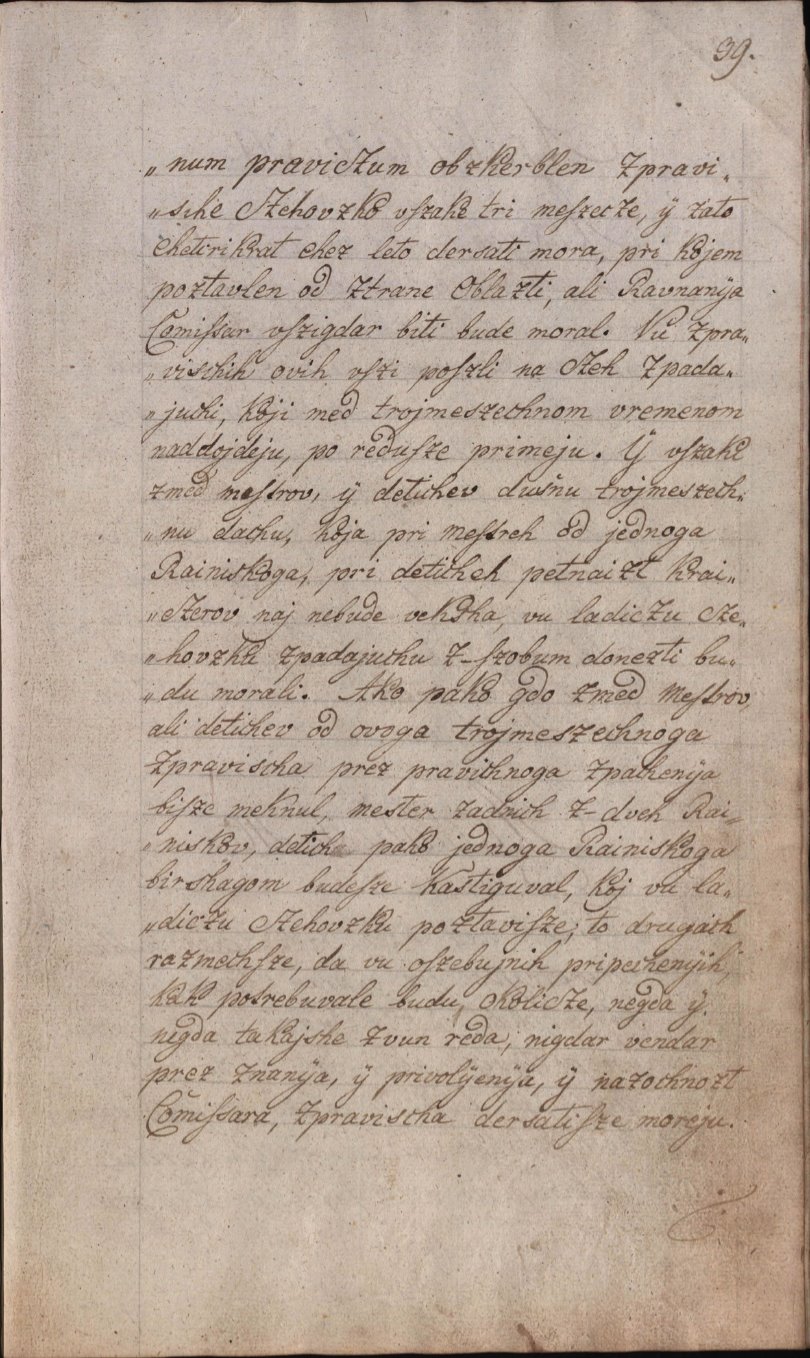 39.
„num pravicZum obzkerblen Zpravi„
„sche CZehovzko vszake tri meszecze, ÿ zato
chetirikrat chez leto dersati mora, pri kojem
poztavlen od Ztrane Oblazti, ali Ravnanÿa
Comissar vszigdar biti bude moral. Vu Zpra„
„vischih ovih vszi poszli na CZeh Zpada„
„juchi, koji med trojmeszechnom vremenom
naddojdeju, po redusze primeju. Ÿ vszaki
zmed mestrov, ÿ detichev dusnu trojmeszech„
„nu dachu, koja pri mestreh od jednoga
Rainiskoga, pri deticheh petnaizt krai„
„czerov naj nebude veksha, vu ladiczu cze„
„hovzku zpadajuchu Z-szobum donezti bu„
„du morali. Ako pako gdo zmed Mestrov,
ali detichev od ovoga trojmeszechnoga
Zpravischa prez pravichnoga Zpachenÿa
bisze meknul, mester zadnich Z-dveh Rai„
„niskov, detich pako jednoga Rainiskoga
birshagom budesze kastiguval, koj vu la„
„diczu CZehovzku poztavisze; to drugach
razmechsze, da vu oszebujnih pripechenÿih,
kak potrebuvale budu, okolicze, negda ÿ
negda takajshe zvun reda, nigdar vendar
prez Znanÿa, ÿ privolÿenÿa, ÿ nazochnozt
Comissara, Zpravischa dersatisze moreju.